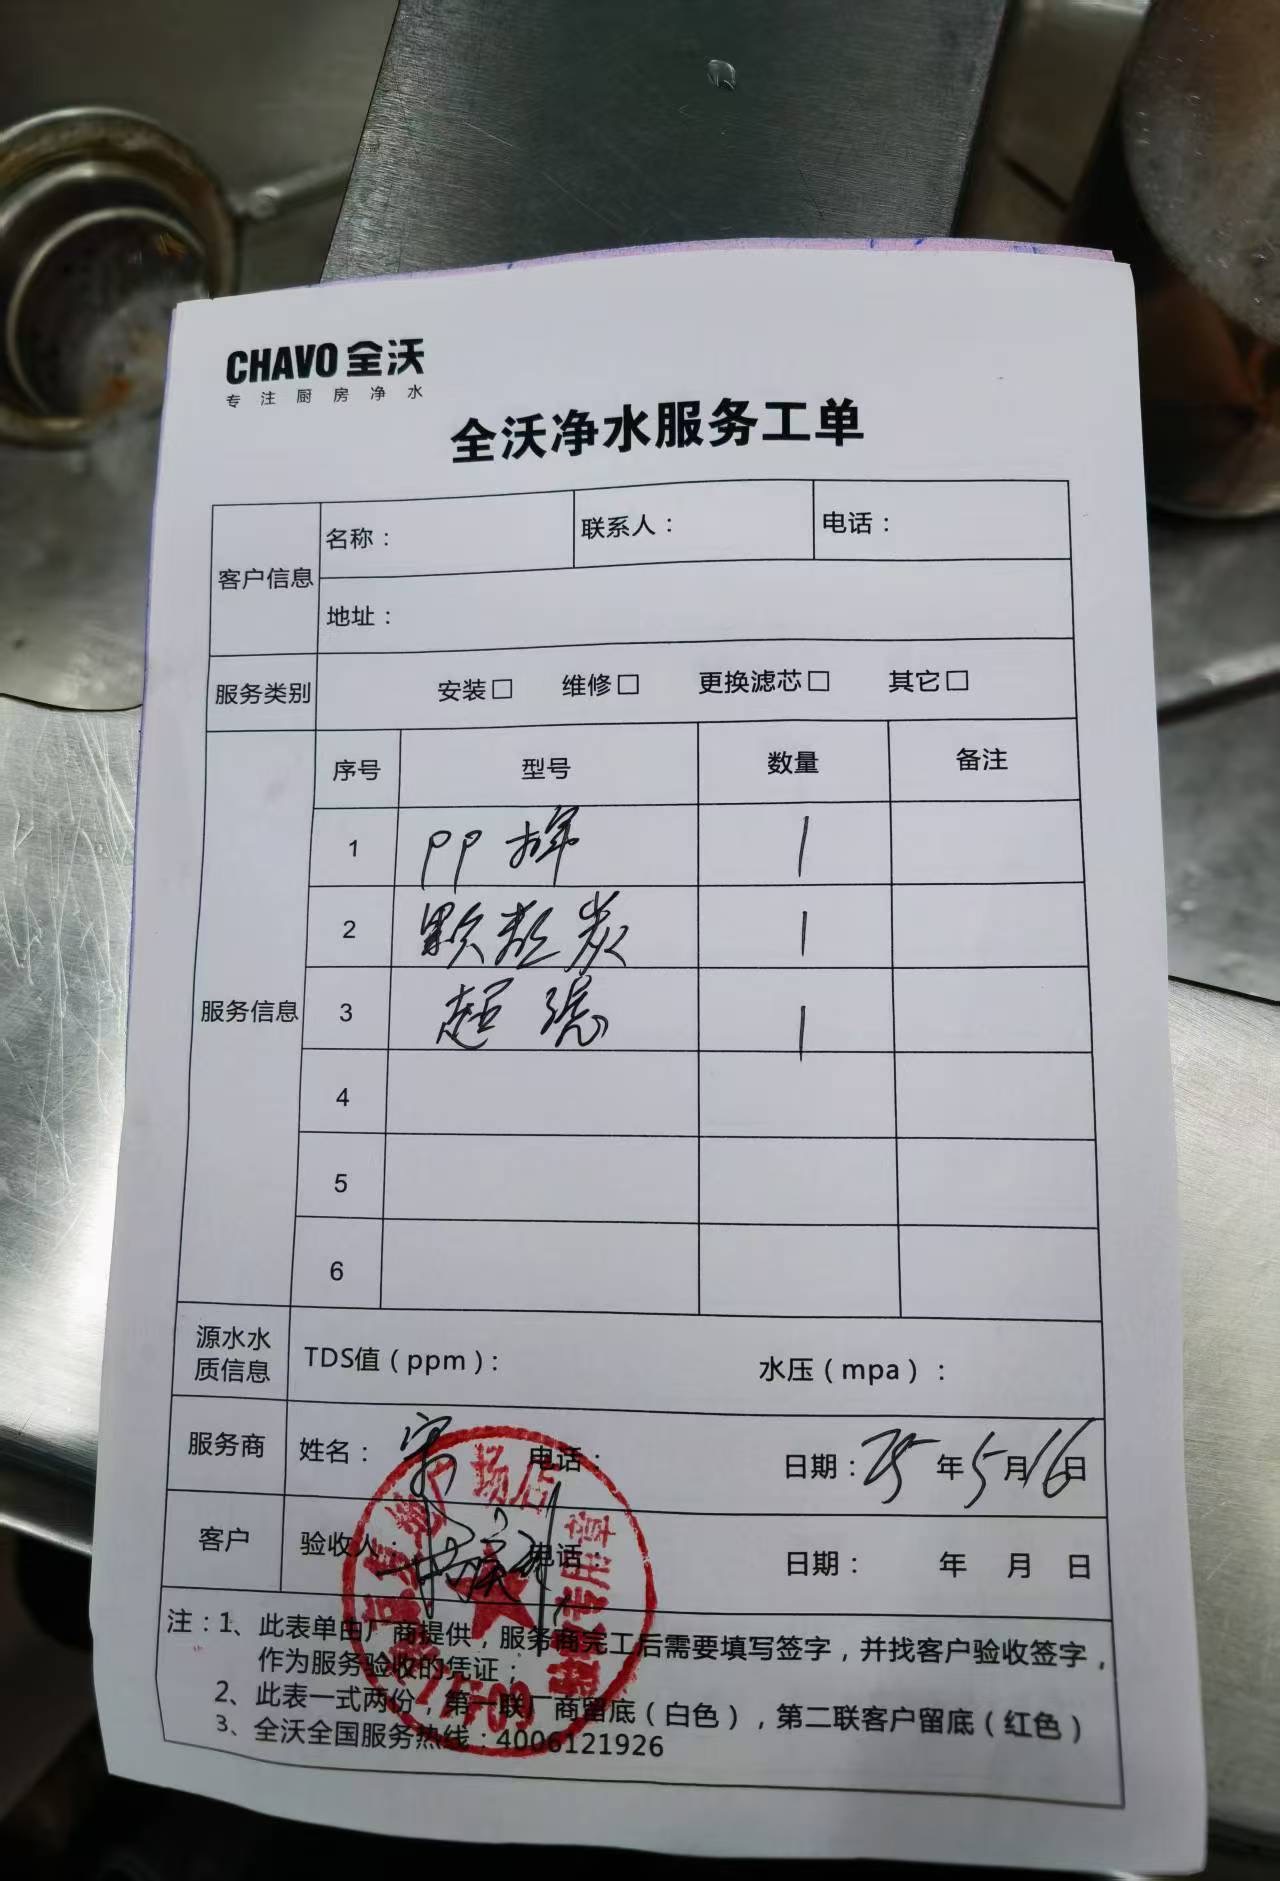 CHAVO 全沃
专注厨房净水
全沃净水服务工单
客户信息
名称： 联系人： 电话：
地址：
服务类别 安装□ 维修□ 更换滤芯□ 其它□
服务信息
序号 型号 数量 备注
1 PP棉 1
2 颗粒炭 1
3 超滤 1
4
5
6
源水水质信息 TDS值（ppm）： 水压（mpa）：
服务商 姓名：宋 电话： 日期：25年5月16日
客户 验收人： 电话 日期： 年 月 日
注：1、此表单由厂商提供，服务商完工后需要填写签字，并找客户验收签字，
作为服务验收的凭证；
2、此表一式两份，第一联厂商留底（白色），第二联客户留底（红色）
3、全沃全国服务热线：4006121926
广场店
专用章